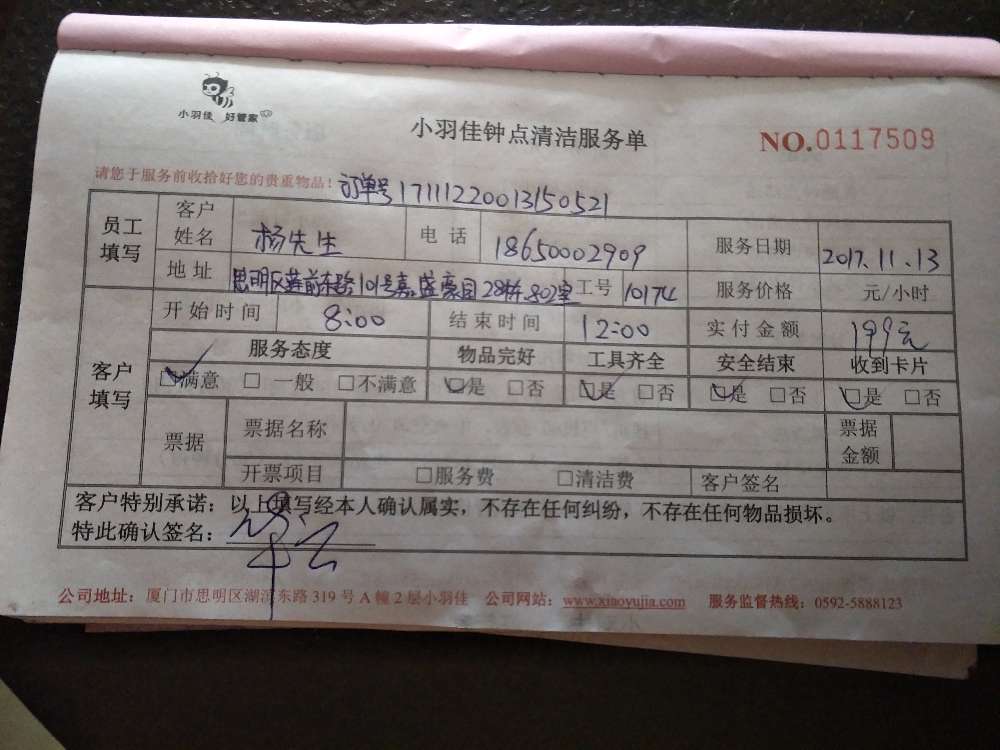 小羽佳 好管家
小羽佳钟点清洁服务单
NO.0117509
请您于服务前收拾好您的贵重物品！ 订单号17111220013150521
员工填写 客户姓名 杨先生 电话 18650002909 服务日期 2017.11.13
地址 思明区莲前东路101号嘉盛豪园28栋802室 工号 10174 服务价格 元/小时
客户填写 开始时间 8:00 结束时间 12:00 实付金额 199元
服务态度 物品完好 工具齐全 安全结束 收到卡片
☑满意 □一般 □不满意 ☑是 □否 ☑是 □否 ☑是 □否 ☑是 □否
票据 票据名称 票据金额
开票项目 □服务费 □清洁费 客户签名
客户特别承诺：以上填写经本人确认属实，不存在任何纠纷，不存在任何物品损坏。
特此确认签名：
公司地址：厦门市思明区湖滨东路319号A幢2层小羽佳 公司网站：www.xiaoyujia.com 服务监督热线：0592-5888123